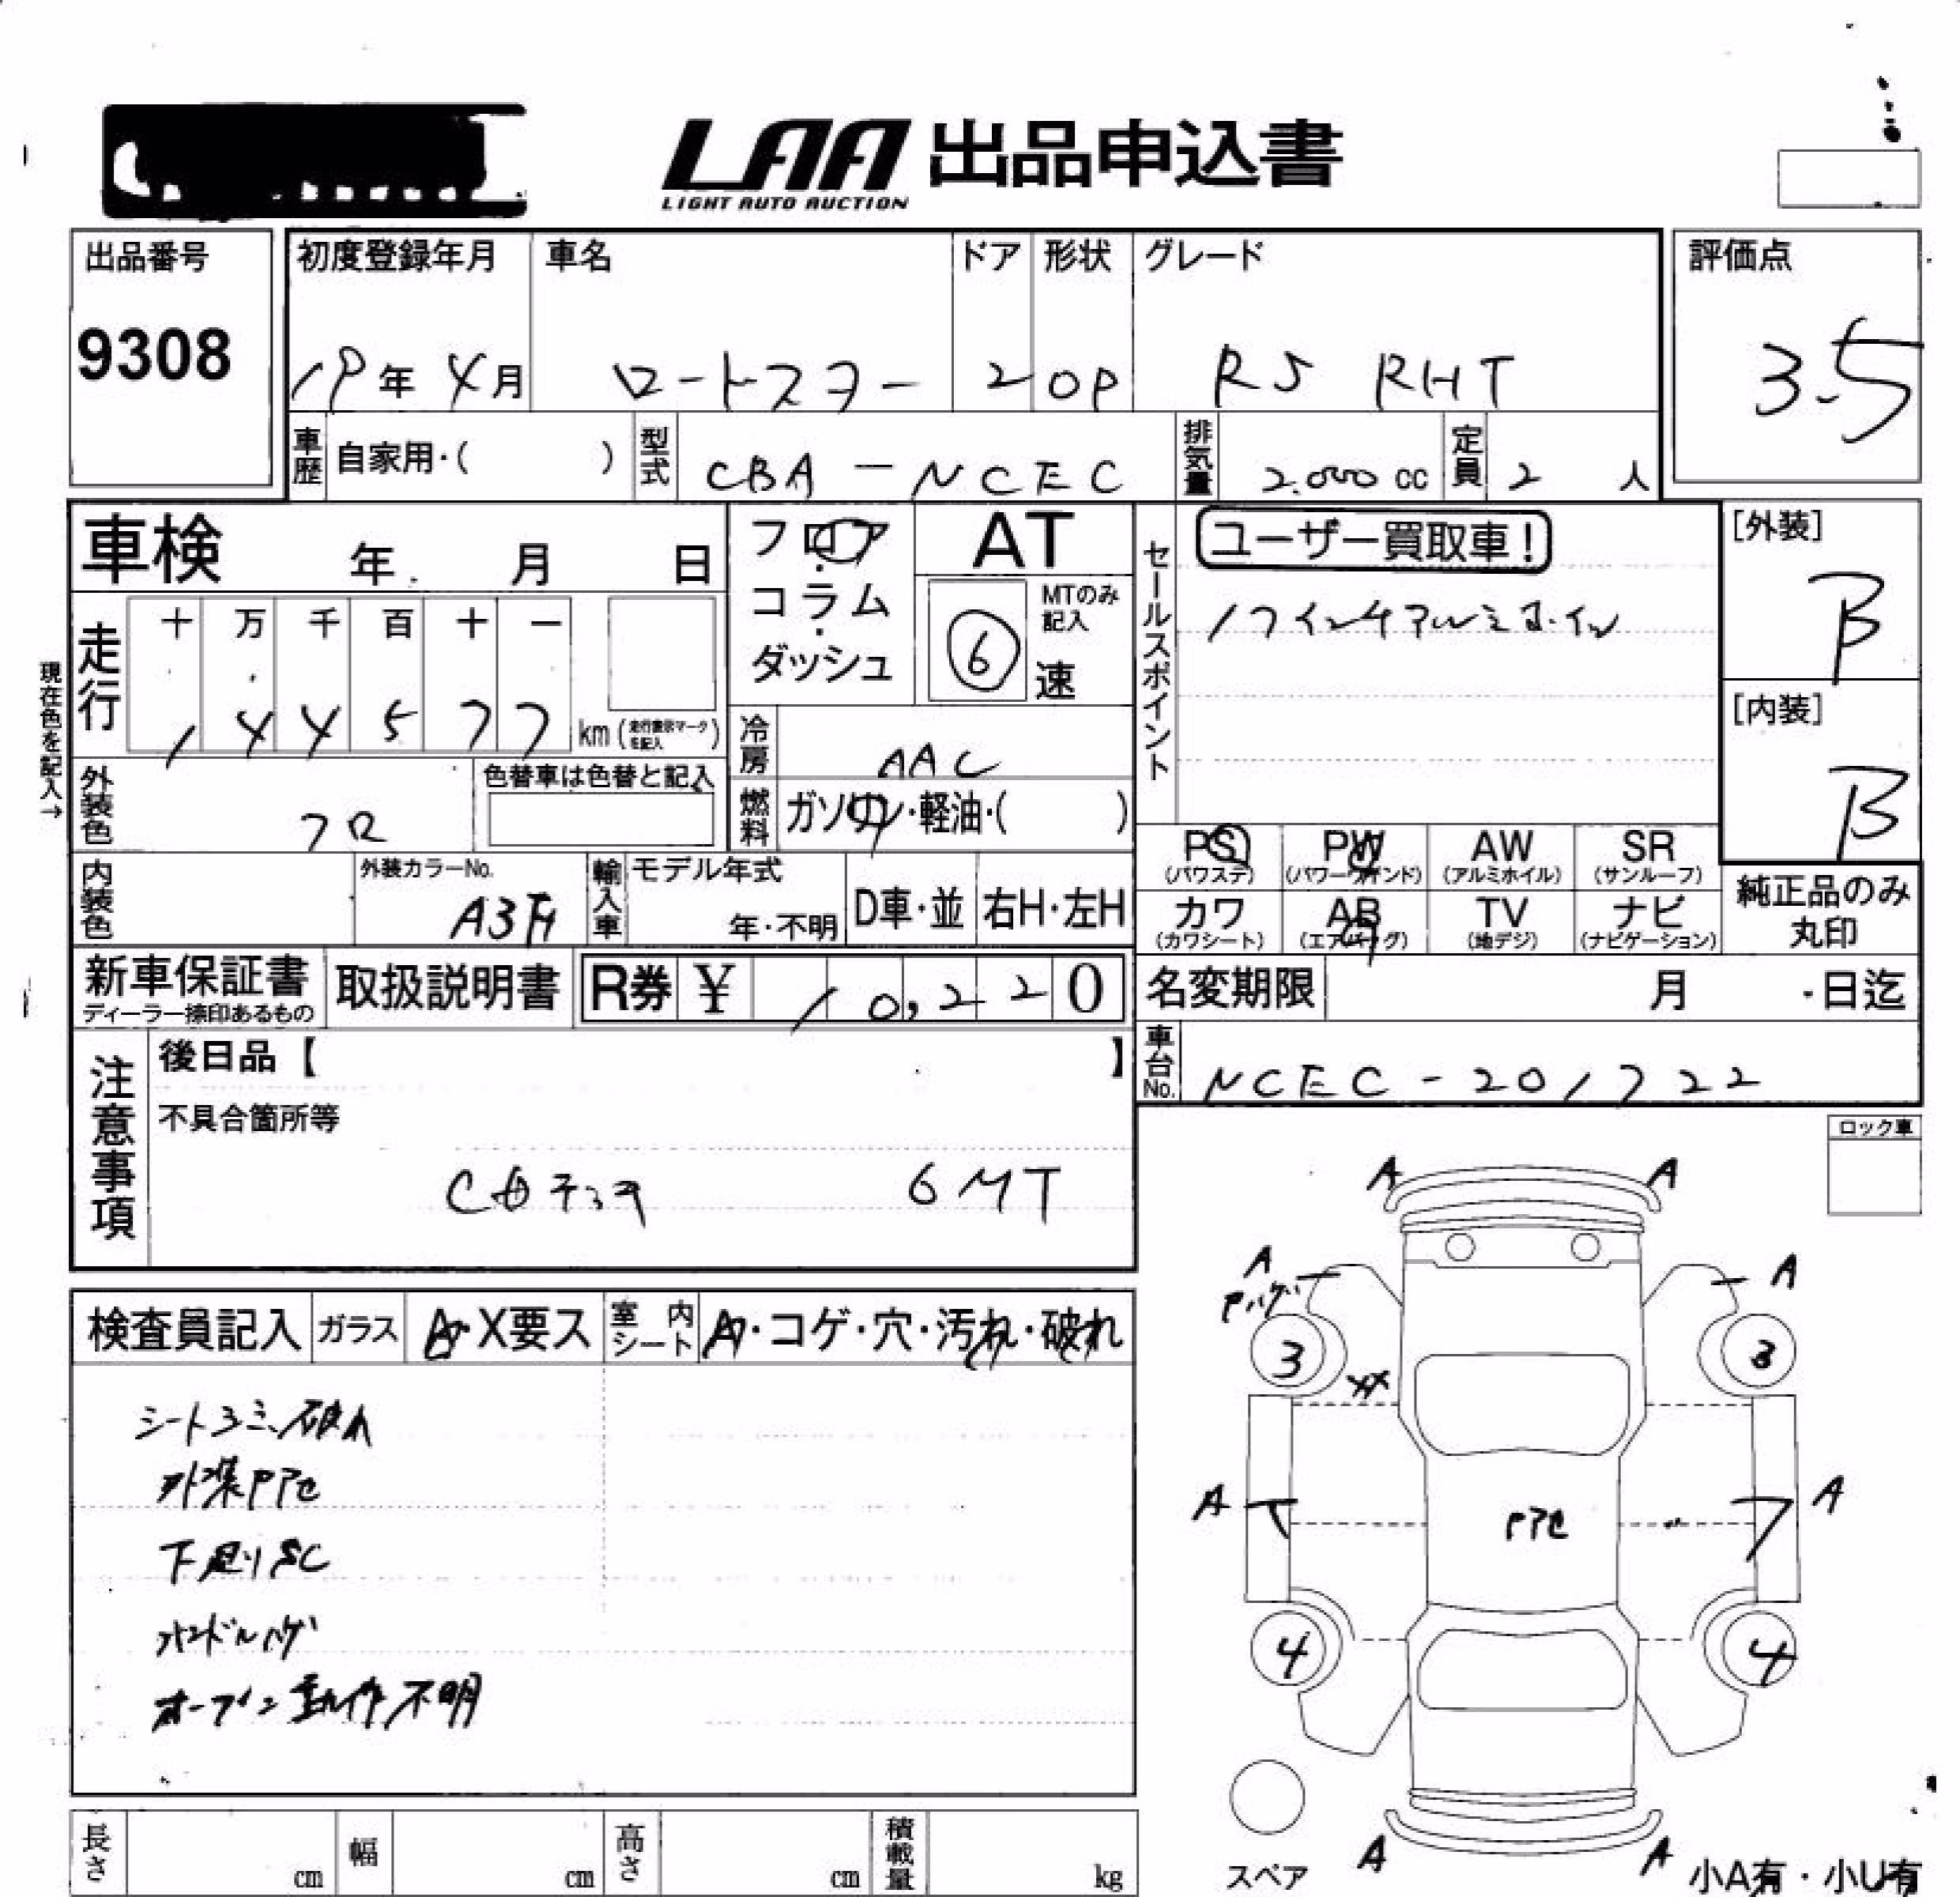 LAA 出品申込書
LIGHT AUTO AUCTION
出品番号
9308
初度登録年月
19年4月
車名
ロードスター
ドア
2
形状
OP
グレード
RS RHT
評価点
3.5
車歴
自家用・( )
型式
CBA-NCEC
排気量
2.000 cc
定員
2 人
車検 年 月 日
フロア
コラム
ダッシュ
AT
⑥
MTのみ記入
速
セールスポイント
ユーザー買取車!
17インチアルミホイル
[外装]
B
[内装]
B
現在色を記入→
走行
十 万 千 百 十 一
1 4 4 5 7 7 km (走行表示マークを記入)
冷房
AAC
燃料
ガソリン・軽油・( )
外装色
クロ
色替車は色替と記入
内装色
外装カラーNo.
A3F
輸入車
モデル年式
年・不明
D車・並
右H・左H
PS
(パワステ)
PW
(パワーウインド)
AW
(アルミホイル)
SR
(サンルーフ)
カワ
(カワシート)
AB
(エアバッグ)
TV
(地デジ)
ナビ
(ナビゲーション)
純正品のみ
丸印
新車保証書
ディーラー捺印あるもの
取扱説明書
R券 ¥ 10,220
名変期限 月 日迄
車台No.
NCEC-201722
注意事項
後日品【 】
不具合箇所等
6MT
ロック車
検査員記入
ガラス
A・X要ス
室内シート
A・コゲ・穴・汚れ・破れ
シートヨゴミ、破れ
外装アセ
下廻りSC
ハンドルハゲ
オープン動作不明
A A
A A
ハゲ
3 3
XX
A A
アセ
4 4
A A
スペア
小A有・小U有
長さ cm
幅 cm
高さ cm
積載量 kg